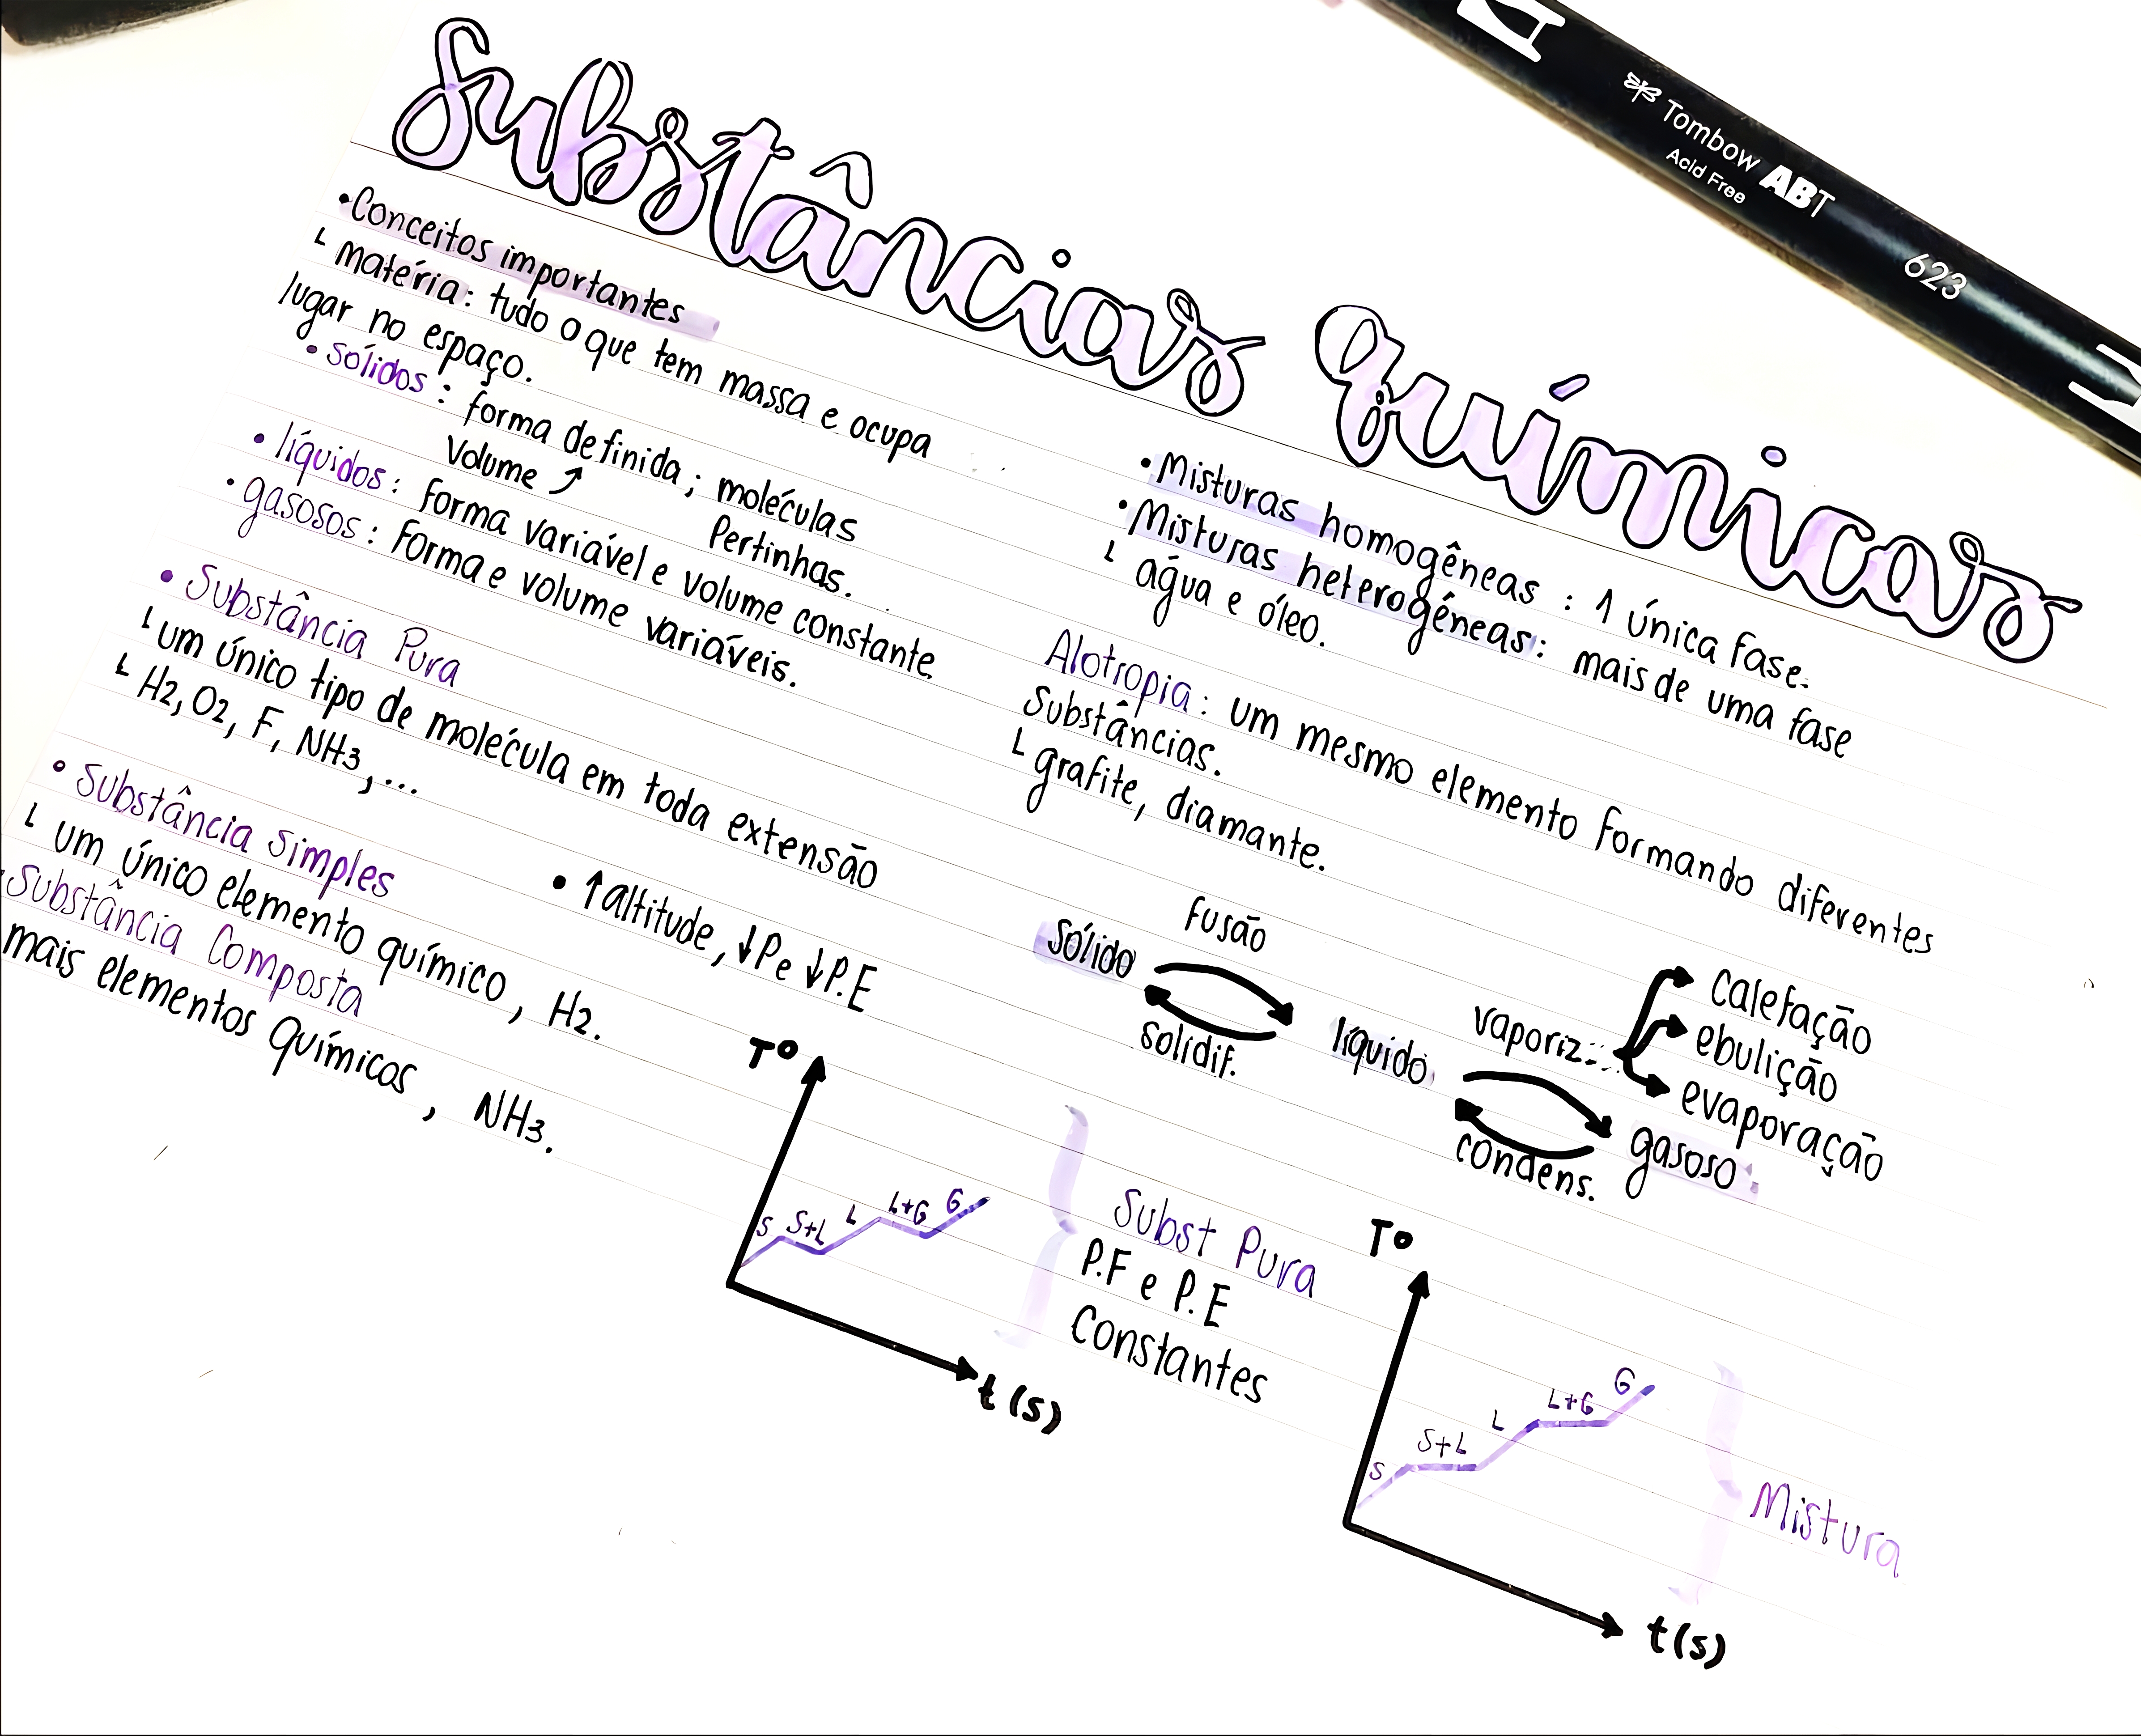 Substâncias Químicas
Tombow ABT
Acid Free
623
•Conceitos importantes
└ matéria: tudo o que tem massa e ocupa
lugar no espaço.
• sólidos: forma definida; moléculas
Volume ↗ Pertinhas.
• líquidos: forma variável e volume constante.
• gasosos: Forma e volume variáveis.
• Substância Pura
└ um único tipo de molécula em toda extensão
└ H2, O2, F, NH3,...
• Substância Simples
└ um único elemento químico, H2.
Substância Composta
mais elementos químicos, NH3.
• ↑altitude, ↓P e ↓P.E
• Misturas homogêneas : 1 única fase.
• Misturas heterogêneas: mais de uma fase
└ água e óleo.
Alotropia: um mesmo elemento formando diferentes
Substâncias.
└ grafite, diamante.
fusão
sólido
solidif.
líquido
vaporiz.
calefação
ebulição
evaporação
condens.
gasoso
Tº
S S+L L L+G G
t(s)
Subst Pura
P.F e P.E
Constantes
Tº
S S+L L L+G G
t(s)
Mistura